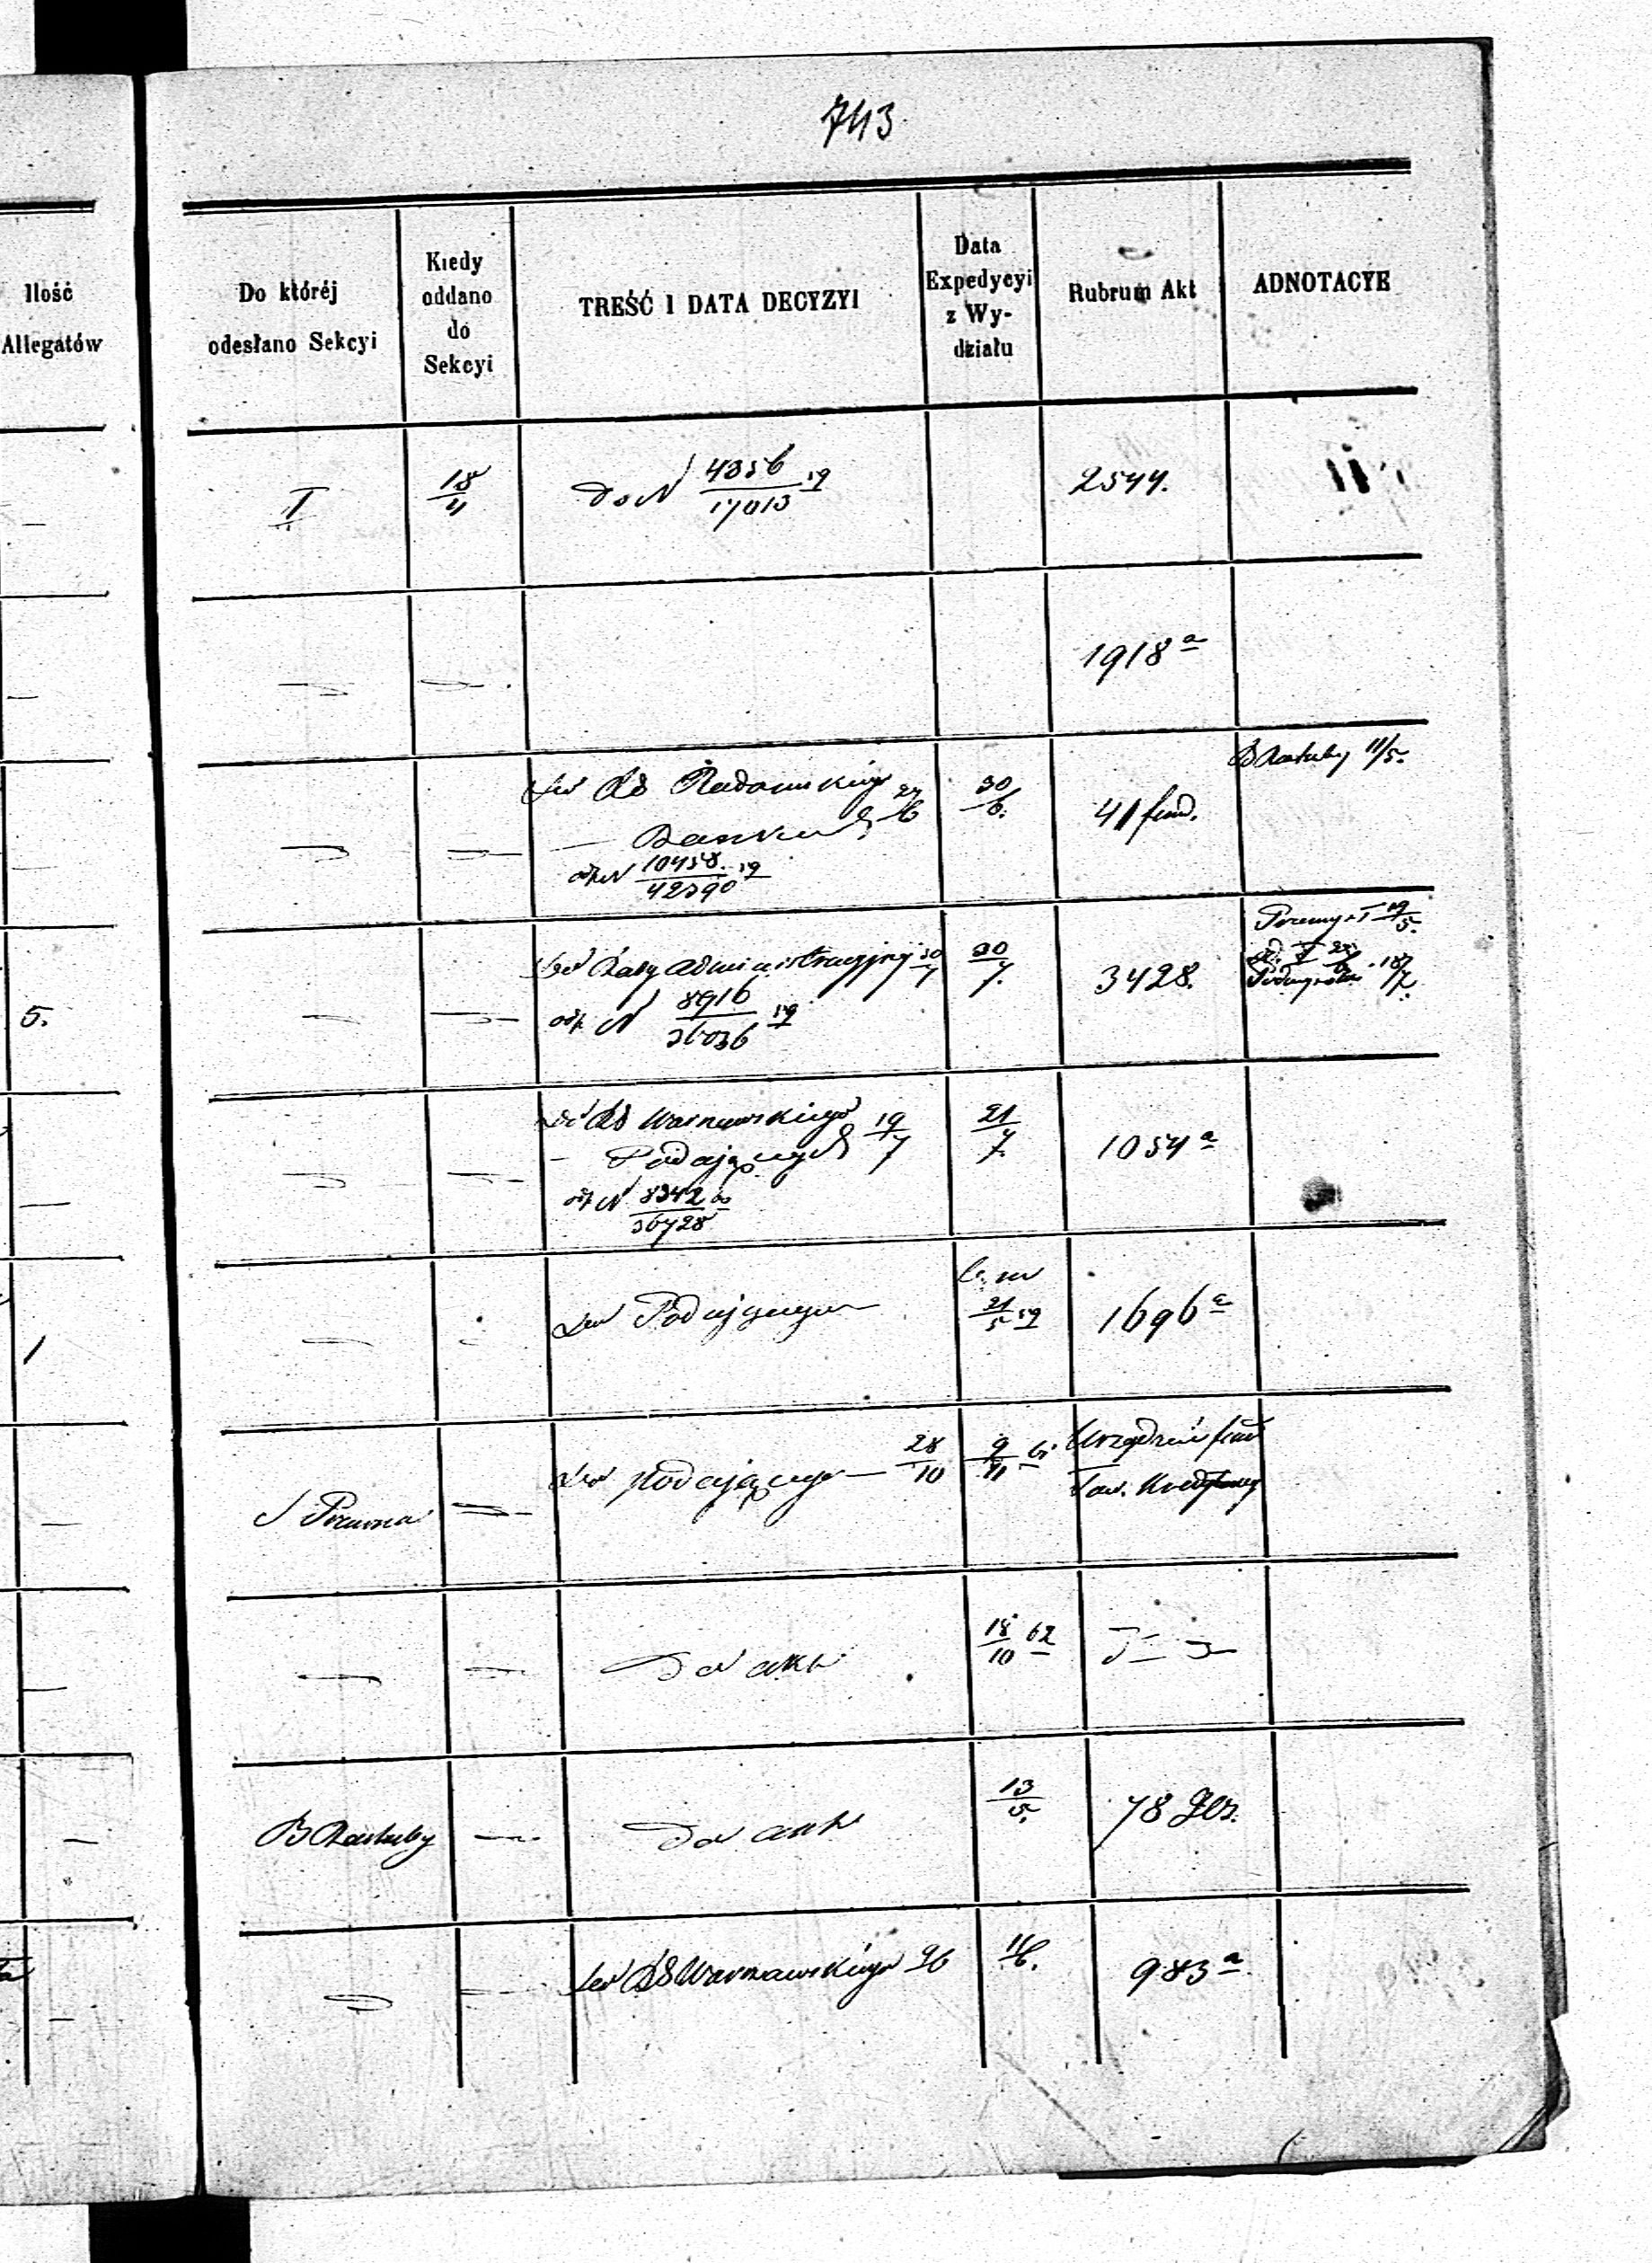 743
Ilość
Allegatów
Do któréj
odesłano Sekcyi
Kiedy
oddano
do
Sekcyi
TREŚĆ I DATA DECYZYI
Data
Expedycyi
z Wy-
działu
Rubrum Akt
ADNOTACYE
I
18/4
Do N 4356/17013 59
2544.
1918 a
Do RG Radomskiego 27/6
— Banku
odp N 10458/42390 59
30/6.
41 fund.
B Rachuby 11/5.
5.
Do Rady Administracyjnej 30/7
odp N 8916/36036 59
30/7.
3428.
19/5.
18/7.
Do RG Warszawskiego 19/7
— Podającego
odp N 8342/36728
21/7.
1054 a
1
Do Podającego
21/5 59
1696 a
Do podającego — 28/10
9/11 61
Tow. Kredytowy
Do akt
18/10 62
B Rachuby
Do akt
13/5.
78
Do RG Warszawskiego 9/6
11/6.
983 a